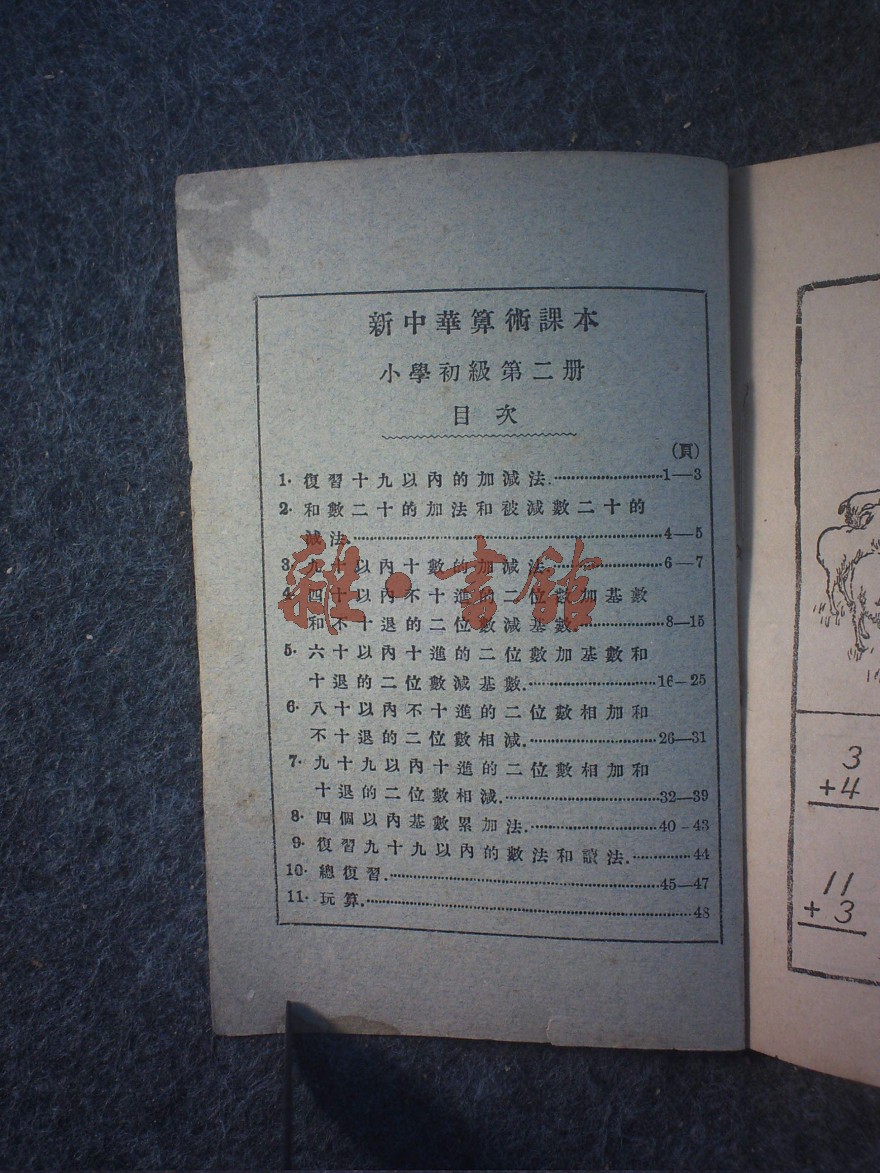 新中華算術課本
小學初級第二册
目次
(頁)
1· 復習十九以內的加減法.……1—3
2· 和數二十的加法和被減數二十的
減法.……4—5
3· 九十以內十數的加減法.……6—7
4· 四十以內不十進的二位數加基數
和不十退的二位數減基數.……8—15
5· 六十以內十進的二位數加基數和
十退的二位數減基數.……16—25
6· 八十以內不十進的二位數相加和
不十退的二位數相減.……26—31
7· 九十九以內十進的二位數相加和
十退的二位數相減.……32—39
8· 四個以內基數累加法.……40—43
9· 復習九十九以內的數法和讀法.……44
10· 總復習.……45—47
11· 玩算.……48
雜·書館
3
+4
11
+ 3